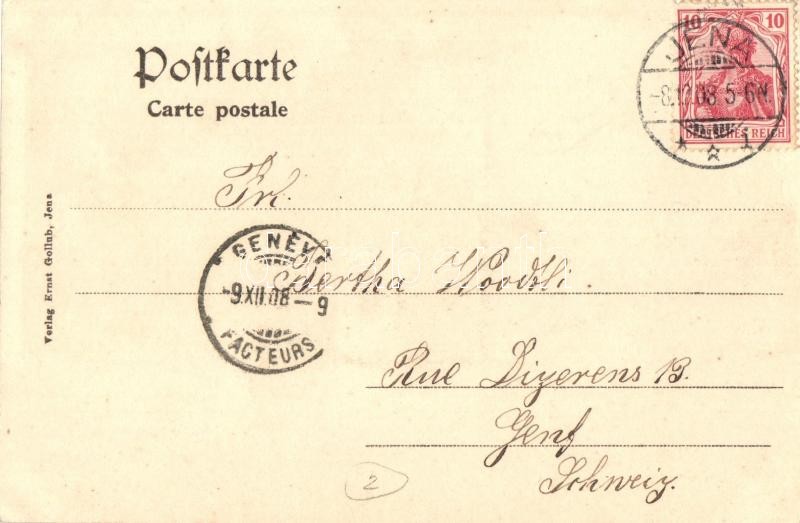 Postkarte
Carte postale
10 10
DEUTSCHES REICH
JENA
-8.12.08 5-6N
* 1
Frl.
Bertha
GENÈV
-9.XII.08-9
FACTEURS
Rue Dizerens 13.
Genf
Schweiz.
Verlag Ernst Gollub, Jena
2